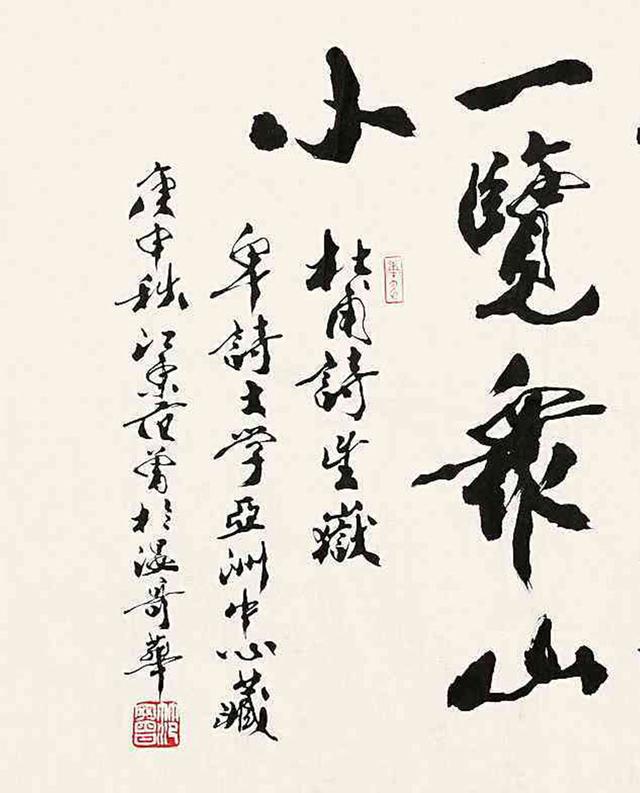 一覽衆山
小
杜甫詩望嶽
卑詩大学亞洲中心藏
庚申秋江東范曾於温哥華